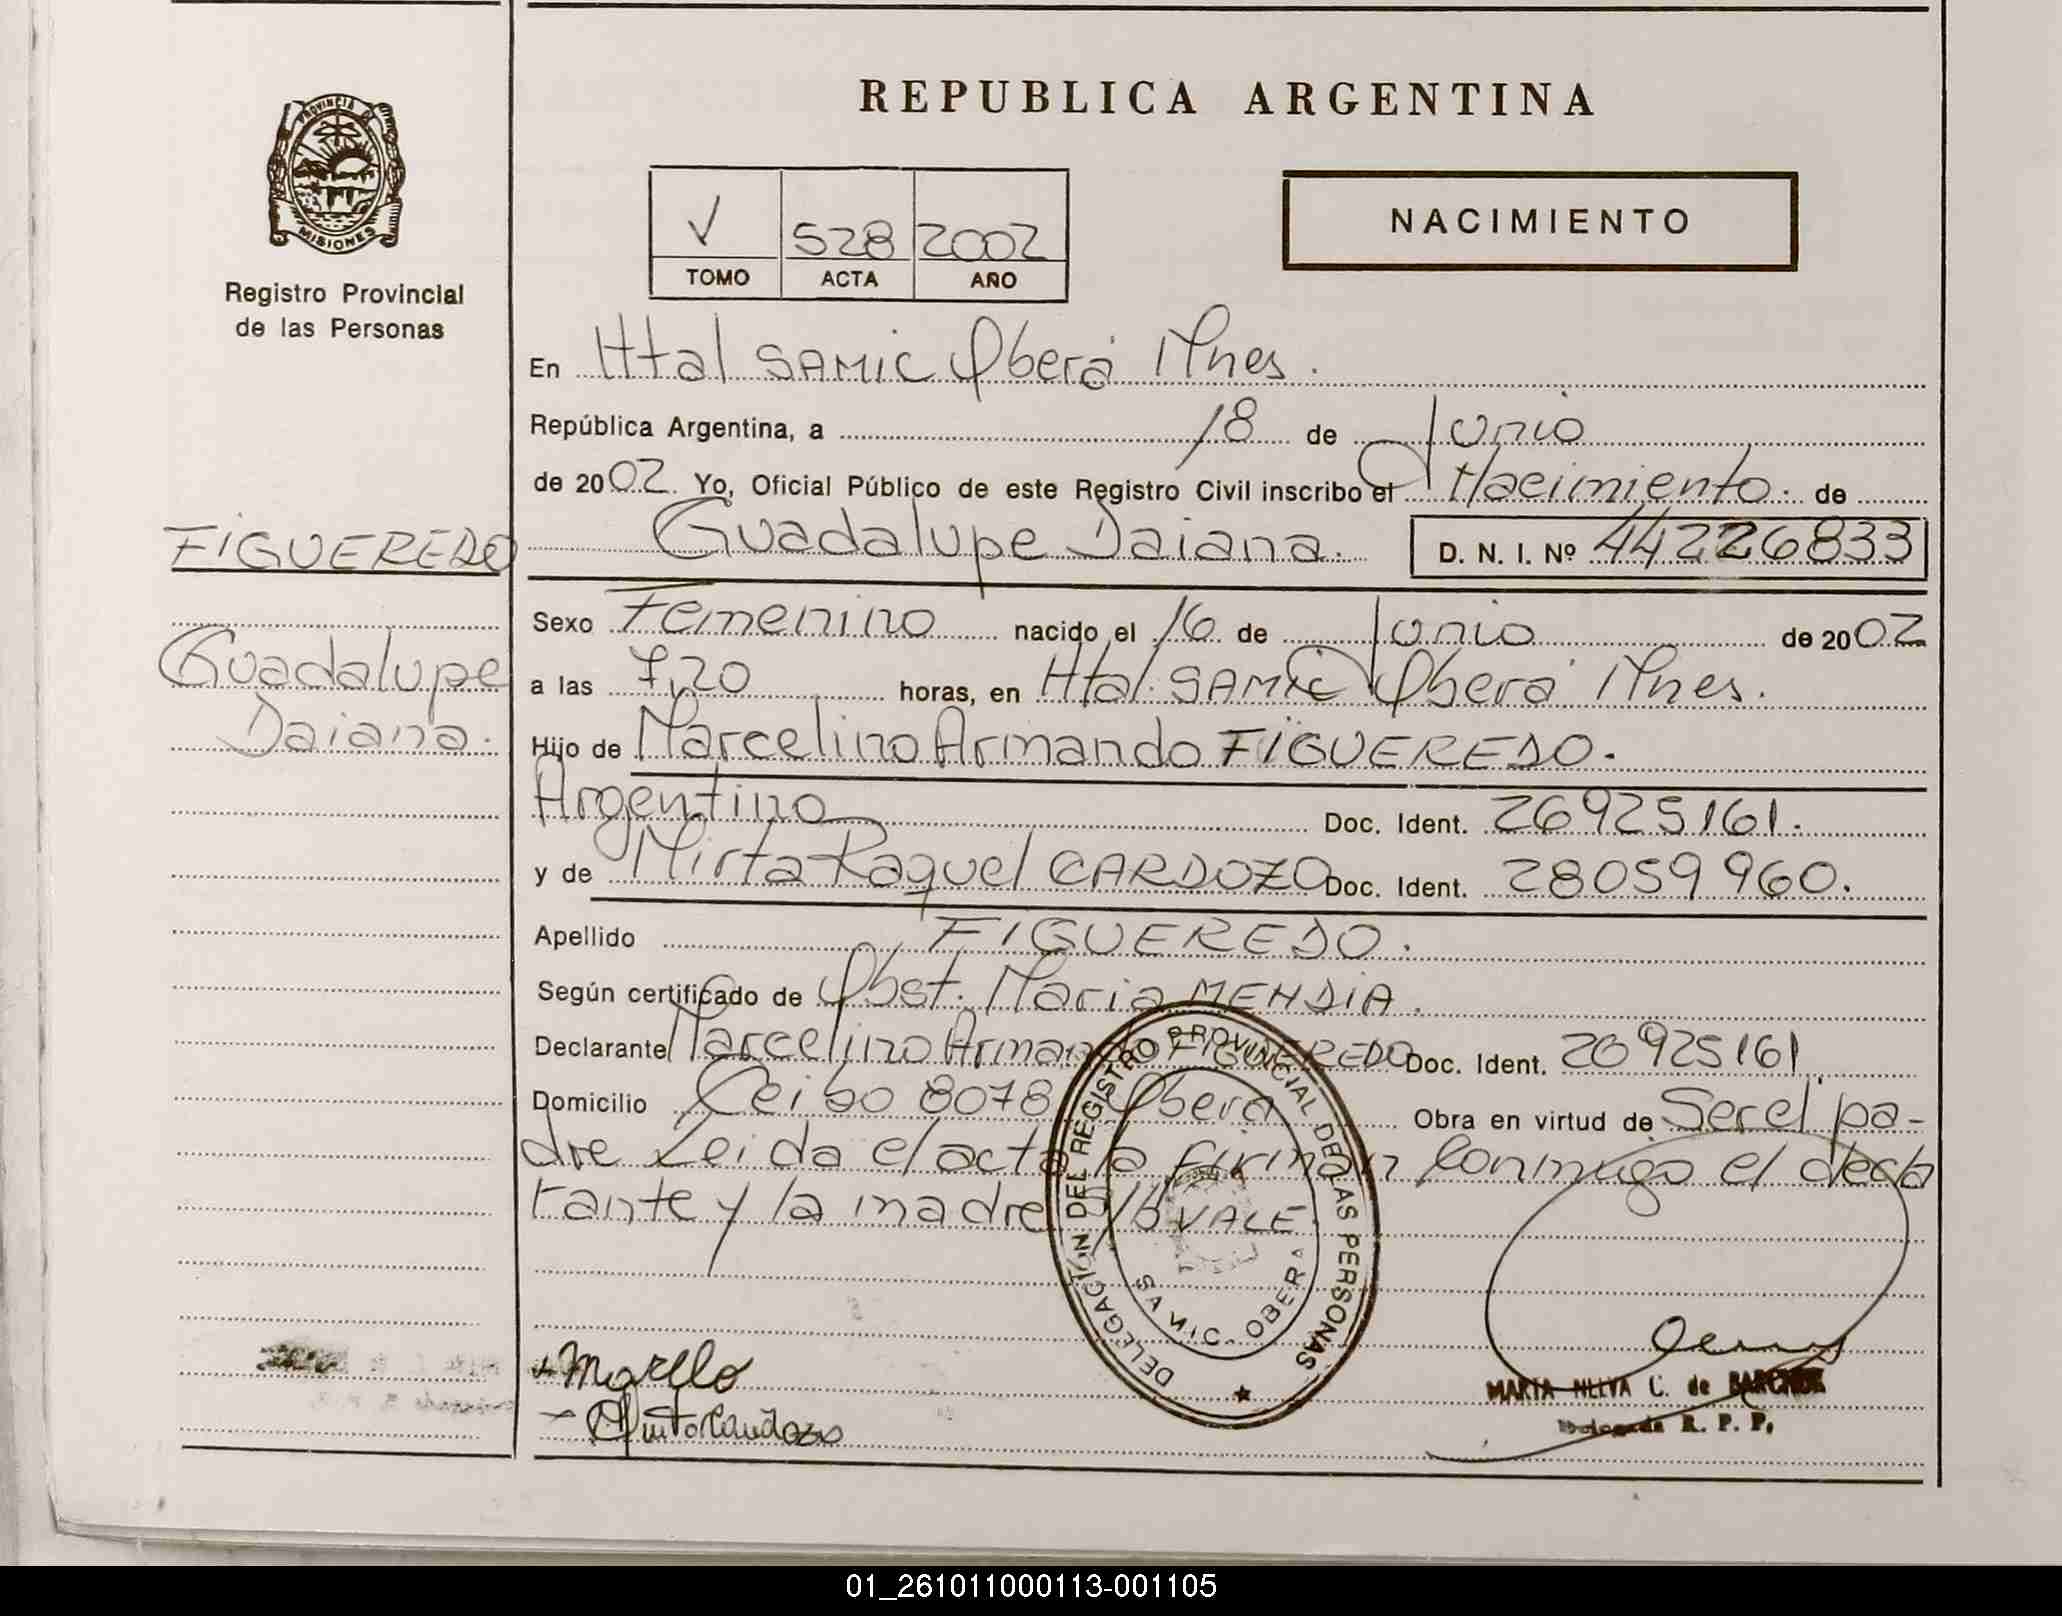 REPUBLICA ARGENTINA
PROVINCIA DE
MISIONES
Registro Provincial
de las Personas
V 528 2002
TOMO ACTA AÑO
NACIMIENTO
En Htal SAMIC Oberá Mnes.
República Argentina, a 18 de Junio
de 2002 Yo, Oficial Público de este Registro Civil inscribo el Nacimiento. de
Guadalupe Daiana. D. N. I. Nº 44226833
FIGUEREDO
Guadalupe
Daiana.
Sexo Femenino nacido el 16 de Junio de 2002
a las 7,20 horas, en Htal. SAMIC Oberá Mnes.
Hijo de Marcelino Armando FIGUEREDO.
Argentino Doc. Ident. 26925161.
y de Mirta Raquel CARDOZO Doc. Ident. 28059960.
Apellido FIGUEREDO.
Según certificado de Obst. Maria MENDIA.
Declarante Marcelino Armando FIGUEREDO Doc. Ident. 26925161.
Domicilio Ceibo 8078 Oberá Obra en virtud de Ser el pa-
dre Leida el acta la firman Conmigo el decla
rante y la madre S/b VALE.
DELEGACION DEL REGISTRO PROVINCIAL DE LAS PERSONAS
SAMIC - OBERA
MARIA C. de
Delegada R. P. P.
01_261011000113-001105